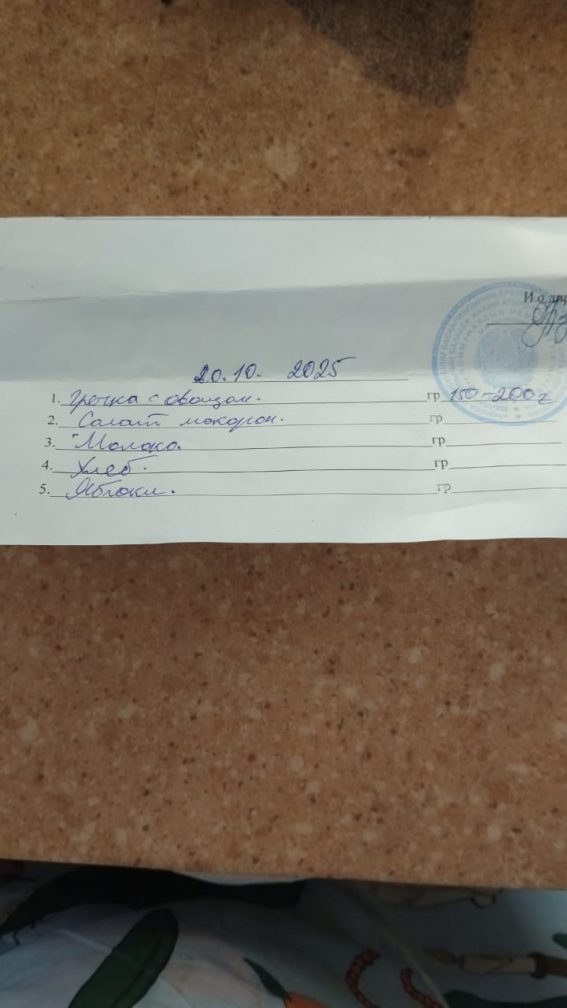 И.о.дир
20.10. 2025
1. Гречка с овощам. гр 150-200г
2. Салат макорон. гр
3. Молоко. гр
4. Хлеб. гр
5. Яблоки. гр